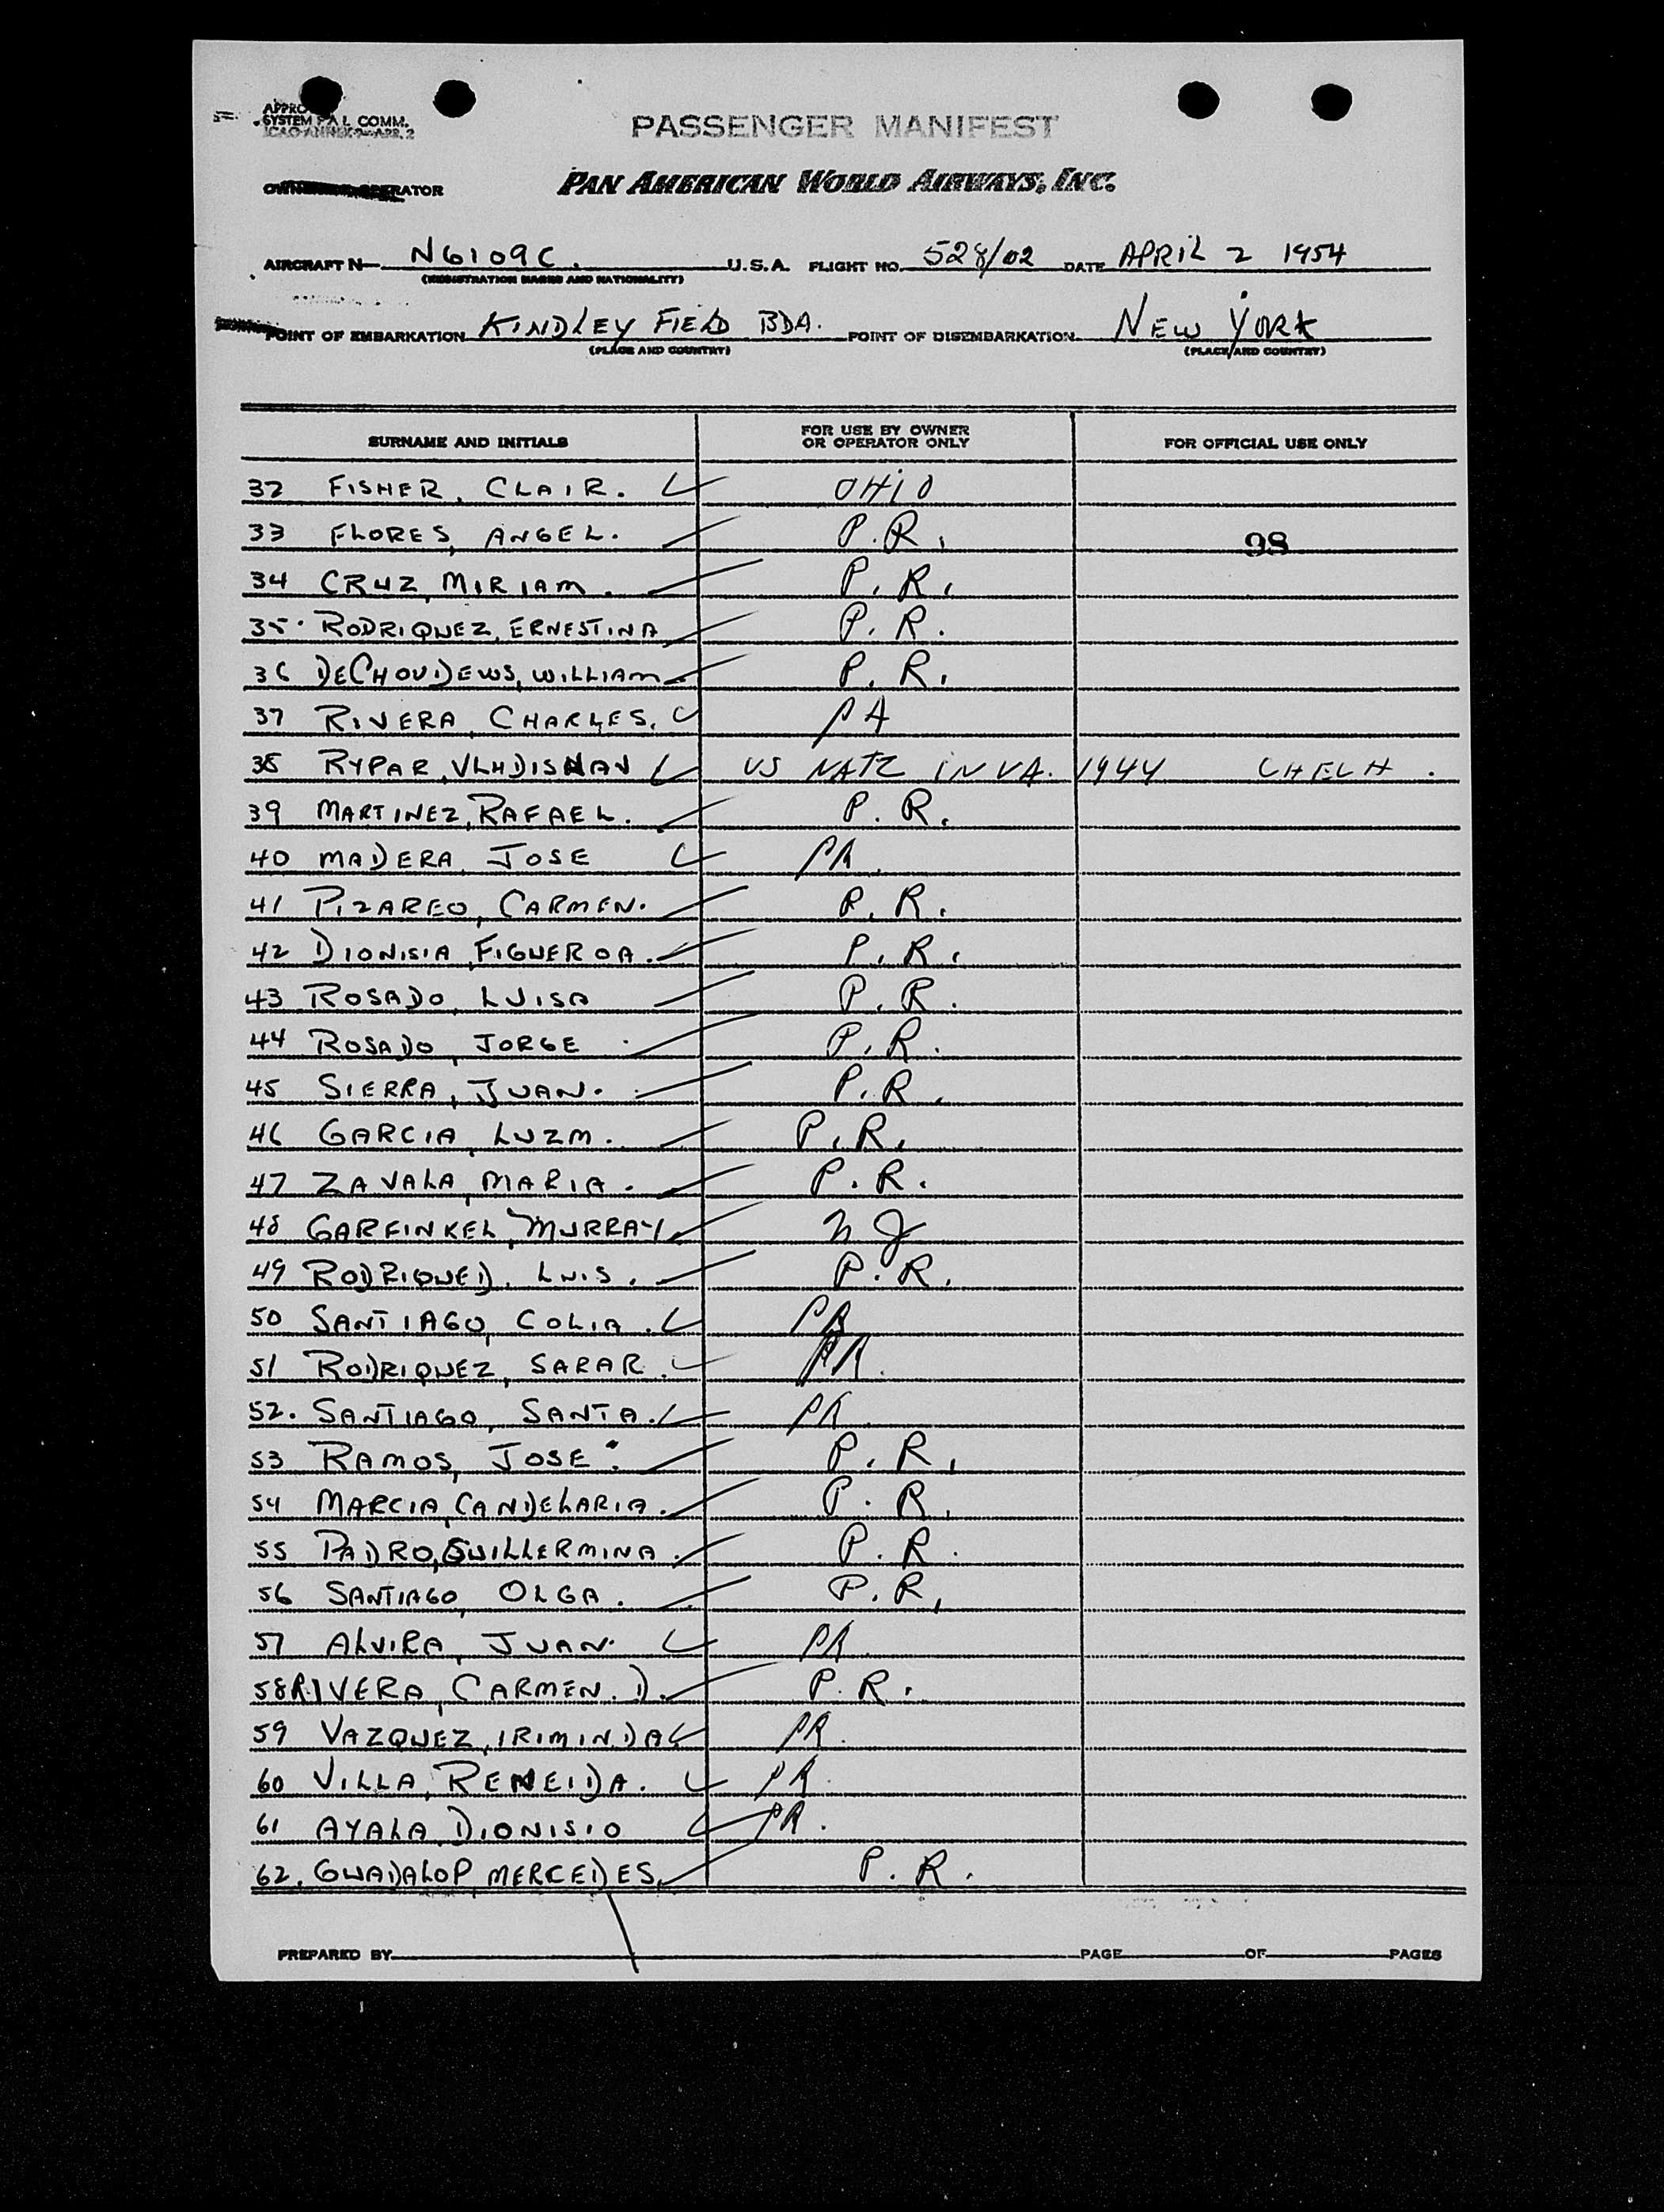 SYSTEM P A L COMM.
PASSENGER MANIFEST
OPERATOR
PAN AMERICAN WORLD AIRWAYS, INC.
AIRCRAFT N N6109C. U.S.A. FLIGHT NO. 528/02 DATE APRIL 2 1954
(REGISTRATION MARKS AND NATIONALITY)
POINT OF EMBARKATION KINDLEY FIELD BDA. POINT OF DISEMBARKATION NEW YORK
(PLACE AND COUNTRY) (PLACE AND COUNTRY)
SURNAME AND INITIALS FOR USE BY OWNER OR OPERATOR ONLY FOR OFFICIAL USE ONLY
32 FISHER, CLAIR. OHIO
33 FLORES, ANGEL. P.R. 98
34 CRUZ, MIRIAM. P.R.
35. RODRIQUEZ, ERNESTINA P.R.
36 DECHOUDEWS, WILLIAM P.R.
37 RIVERA, CHARLES. PA
38 RYPAR, US NATZ IN VA. 1944
39 MARTINEZ, RAFAEL. P.R.
40 MADERA, JOSE PR.
41 PIZAREO, CARMEN. P.R.
42 DIONISIA, FIGUEROA. P.R.
43 ROSADO, LUISA P.R.
44 ROSADO, JORGE P.R.
45 SIERRA, JUAN. P.R.
46 GARCIA, LUZM. P.R.
47 ZAVALA, MARIA. P.R.
48 GARFINKEL, MURRAY NJ
49 RODRIQUED, LUIS. P.R.
50 SANTIAGO, COLIA. PR
51 RODRIQUEZ, SARAR. PR.
52. SANTIAGO, SANTA. PR
53 RAMOS, JOSE. P.R.
54 MARCIA, CANDELARIA. P.R.
55 PADRO, GUILLERMINA. P.R.
56 SANTIAGO, OLGA. P.R.
57 ALVIRA, JUAN. PR.
58 RIVERA, CARMEN. D. P.R.
59 VAZQUEZ, IRIMINDA PR.
60 VILLA, RENEIDA. PR.
61 AYALA, DIONISIO PR.
62. GUADALOP, MERCEDES. P.R.
PREPARED BY PAGE OF PAGES